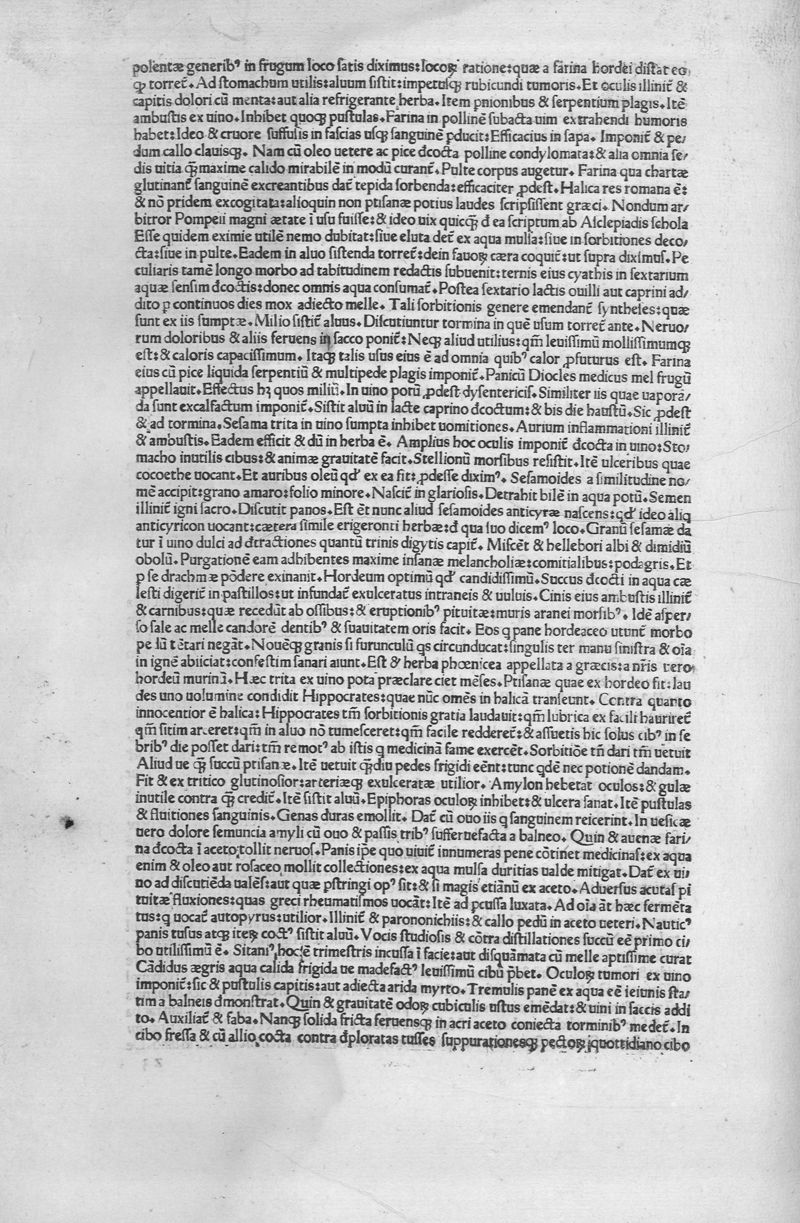 polentæ generibꝰ in frugum loco satis diximus: locoꝝ ratione: quæ a farina hordei distat eo
ꝙ torret᷑. Ad stomachum utilis: aluum sistit: impetusqꝫ rubicundi tumoris. Et oculis illinit᷑ &
capitis dolori cū menta: aut alia refrigerante herba. Item pnionibus & serpentium plagis. Itē
ambustis ex uino. Inhibet quoqꝫ pustulas. Farina in pollinē subacta uim extrahendi humoris
habet: Ideo & cruore suffusis in fascias usqꝫ sanguinē ꝑducit: Efficacius in sapa. Imponit᷑ & pe/
dum callo clauisqꝫ. Nam cū oleo uetere ac pice dcocta polline condylomata: & alia omnia se/
dis uitia qꝫ maxime calido mirabilē in modū curant᷑. Pulte corpus augetur. Farina qua chartæ
glutinant᷑ sanguinē excreantibus dat᷑ tepida sorbenda: efficaciter ꝓdest. Halica res romana ē:
& nō pridem excogitata: alioquin non ptisanæ potius laudes scripsissent græci. Nondum ar/
bitror Pompeii magni ætate ī usu fuisse: & ideo uix quicqꝫ d ea scriptum ab Asclepiadis schola
Esse quidem eximie utilē nemo dubitat: siue eluta det᷑ ex aqua mulsa: siue in sorbitiones deco/
cta: siue in pulte. Eadem in aluo sistenda torret᷑: dein fauoꝝ cæra coquit᷑: ut supra diximus. Pe
culiaris tamē longo morbo ad tabitudinem redactis subuenit: ternis eius cyathis in sextarium
aquæ sensim dcoctis: donec omnis aqua consumat᷑. Postea sextario lactis ouilli aut caprini ad/
dito ꝑ continuos dies mox adiecto melle. Tali sorbitionis genere emendant᷑ syntheses: quæ
sunt ex iis sumptæ. Milio sistit᷑ aluus. Discutiuntur tormina in quē usum torret᷑ ante. Neruo/
rum doloribus & aliis feruens in sacco ponit᷑: Neqꝫ aliud utilius: qm̄ leuissimū mollissimumqꝫ
est: & caloris capacissimum. Itaqꝫ talis usus eius ē ad omnia quibꝰ calor ꝓfuturus est. Farina
eius cū pice liquida serpentiū & multipede plagis imponit᷑. Panicū Diocles medicus mel frugū
appellauit. Effectus hꝫ quos miliū. In uino potū ꝓdest dysentericis. Similiter iis quæ uaporā/
da sunt excalfactum imponit᷑. Sistit aluū in lacte caprino dcoctum: & bis die haustū. Sic ꝓdest
& ad tormina. Sesama trita in uino sumpta inhibet uomitiones. Aurium inflammationi illinit᷑
& ambustis. Eadem efficit & dū in herba ē. Amplius hoc oculis imponit᷑ dcocta in uino: Sto/
macho inutilis cibus: & animæ grauitatē facit. Stellionū morsibus resistit. Itē ulceribus quæ
cocoethe uocant. Et auribus oleū qđ ex ea fit: ꝓdesse diximꝰ. Sesamoides a similitudine no/
mē accipit: grano amaro: folio minore. Nascit᷑ in glariosis. Detrahit bilē in aqua potū. Semen
illinit᷑ igni sacro. Discutit panos. Est ēt nunc aliud sesamoides anticyræ nascens: qđ ideo aliq
anticyricon uocant: cætera simile erigeronti herbæ: d qua suo dicemꝰ loco. Granū sesamæ da
tur ī uino dulci ad dtractiones quantū trinis digytis capit᷑. Miscēt & hellebori albi & dimidiū
obolū. Purgationē eam adhibentes maxime insanæ melancholiæ: comitialibus: podagris. Et
ꝑ se drachmæ pōdere exinanit. Hordeum optimū qđ candidissimū. Succus dcocti in aqua cæ
lesti digerit᷑ in pastillos: ut infundat᷑ exulceratus intraneis & uuluis. Cinis eius ambustis illinit᷑
& carnibus: quæ recedūt ab ossibus: & eruptionibꝰ pituitæ: muris aranei morsibꝰ. Idē asper/
so sale ac melle candorē dentibꝰ & suauitatem oris facit. Eos q pane hordeaceo utunt᷑ morbo
pe lū tētari negāt. Nouēqꝫ granis si furunculū qs circunducat: singulis ter manu sinistra & oīa
in ignē abiiciat: confestim sanari aiunt. Est & herba phœnicea appellata a græcis: a nr̄is uero
hordeū murinū. Hæc trita ex uino pota præclare ciet mēses. Ptisanæ quæ ex hordeo fit: lau
des uno uolumine condidit Hippocrates: quæ nūc omēs in halicā transeunt. Contra quanto
innocentior ē halica: Hippocrates tm̄ sorbitionis gratia laudauit: qm̄ lubrica ex facili hauriret᷑
qm̄ sitim arceret: qm̄ in aluo nō tumesceret: qm̄ facile redderet᷑: & assuetis hic solus cibꝰ in fe
bribꝰ die posset dari: tm̄ remotꝰ ab istis q medicinā fame exercēt. Sorbitiōe tn̄ dari tm̄ uetuit
Aliud ue qꝫ succū ptisanæ. Itē uetuit qꝫdiu pedes frigidi eēnt: tunc qdē nec potionē dandam.
Fit & ex tritico glutinosior: arteriæqꝫ exulceratæ utilior. Amylon hebetat oculos: & gulæ
inutile contra qꝫ credit᷑. Itē sistit aluū. Epiphoras oculoꝝ inhibet: & ulcera sanat. Itē pustulas
& fluitiones sanguinis. Genas duras emollit. Dat᷑ cū ouo iis q sanguinem reicerint. In uesicæ
uero dolore semuncia amyli cū ouo & passis tribꝰ sufferuefacta a balneo. Quin & auenæ fari/
na dcocta ī aceto tollit neruos. Panis ipe quo uiuit᷑ innumeras pene cōtinet medicinas: ex aqua
enim & oleo aut rosaceo mollit collectiones: ex aqua mulsa duritias ualde mitigat. Dat᷑ ex ui/
no ad discutiēda ualēs: aut quæ pstringi opꝰ sit: & si magis etiānū ex aceto. Aduersus acutas pi
tuitæ fluxiones: quas greci rheumatismos uocāt: Itē ad ꝑcussa luxata. Ad oīa āt hæc fermēta
tus: q uocat᷑ autopyrus: utilior. Illinit᷑ & parononichiis: & callo pedū in aceto ueteri. Nauticꝰ
panis tusus atqꝫ iteꝝ coctꝰ sistit aluū. Vocis studiosis & cōtra distillationes succū eē primo ci/
bo utilissimū ē. Sitaniꝰ hoc ē trimestris incussa ī facie: aut disquāmata cū melle aptissime curat
Cādidus ægris aqua calida frigida ue madefactꝰ leuissimū cibū p̄bet. Oculoꝝ tumori ex uino
imponit᷑: sic & pustulis capitis: aut adiecta arida myrto. Tremulis panē ex aqua eē ieiunis sta/
tim a balneis dmonstrat. Quin & grauitatē odoꝝ cubiculis ustus emēdat: & uini in saccis addi
to. Auxiliat᷑ & faba. Nanqꝫ solida fricta feruensqꝫ in acri aceto coniecta torminibꝰ medet᷑. In
cibo fressa & cū allio cocta contra dploratas tusses suppurationesqꝫ pectoꝝ quottidiano cibo